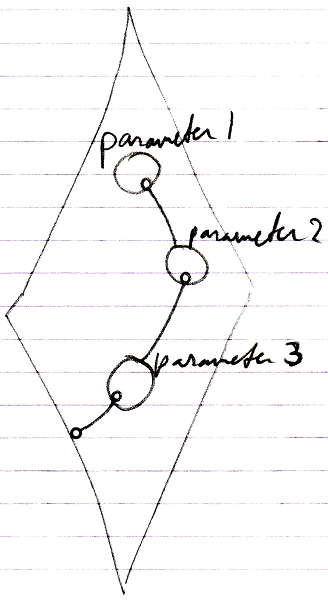 parameter 1
parameter 2
parameter 3